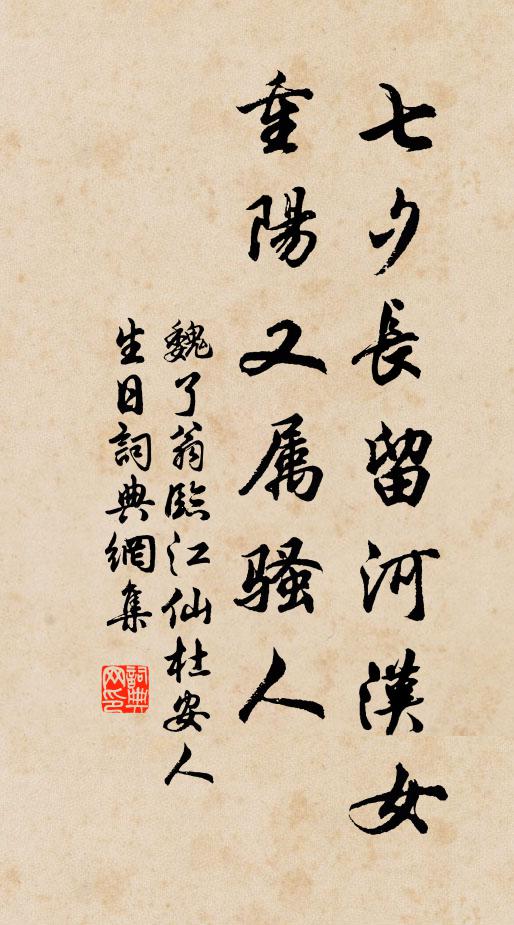 七夕長留河漢女
重陽又属騷人
魏了翁臨江仙杜安人
生日詞典網集
詞典网印